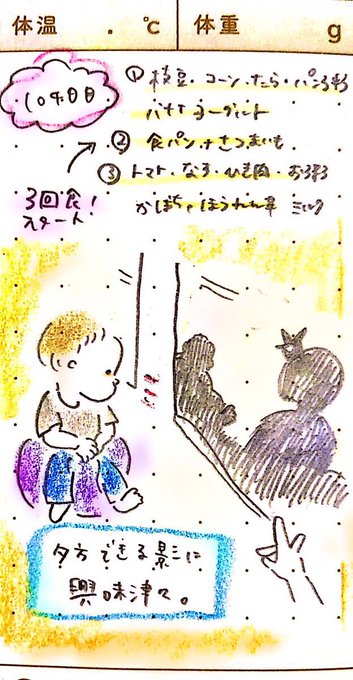 体温 . ℃ 体重 g
104日目
① 枝豆・コーン・たら・パン粥
バナナヨーグルト
② 食パン + さつまいも
③ トマト・なす・ひき肉・お粥
かぼちゃ・ほうれん草 ミルク
3回食！
スタート
夕方できる影に
興味津々。